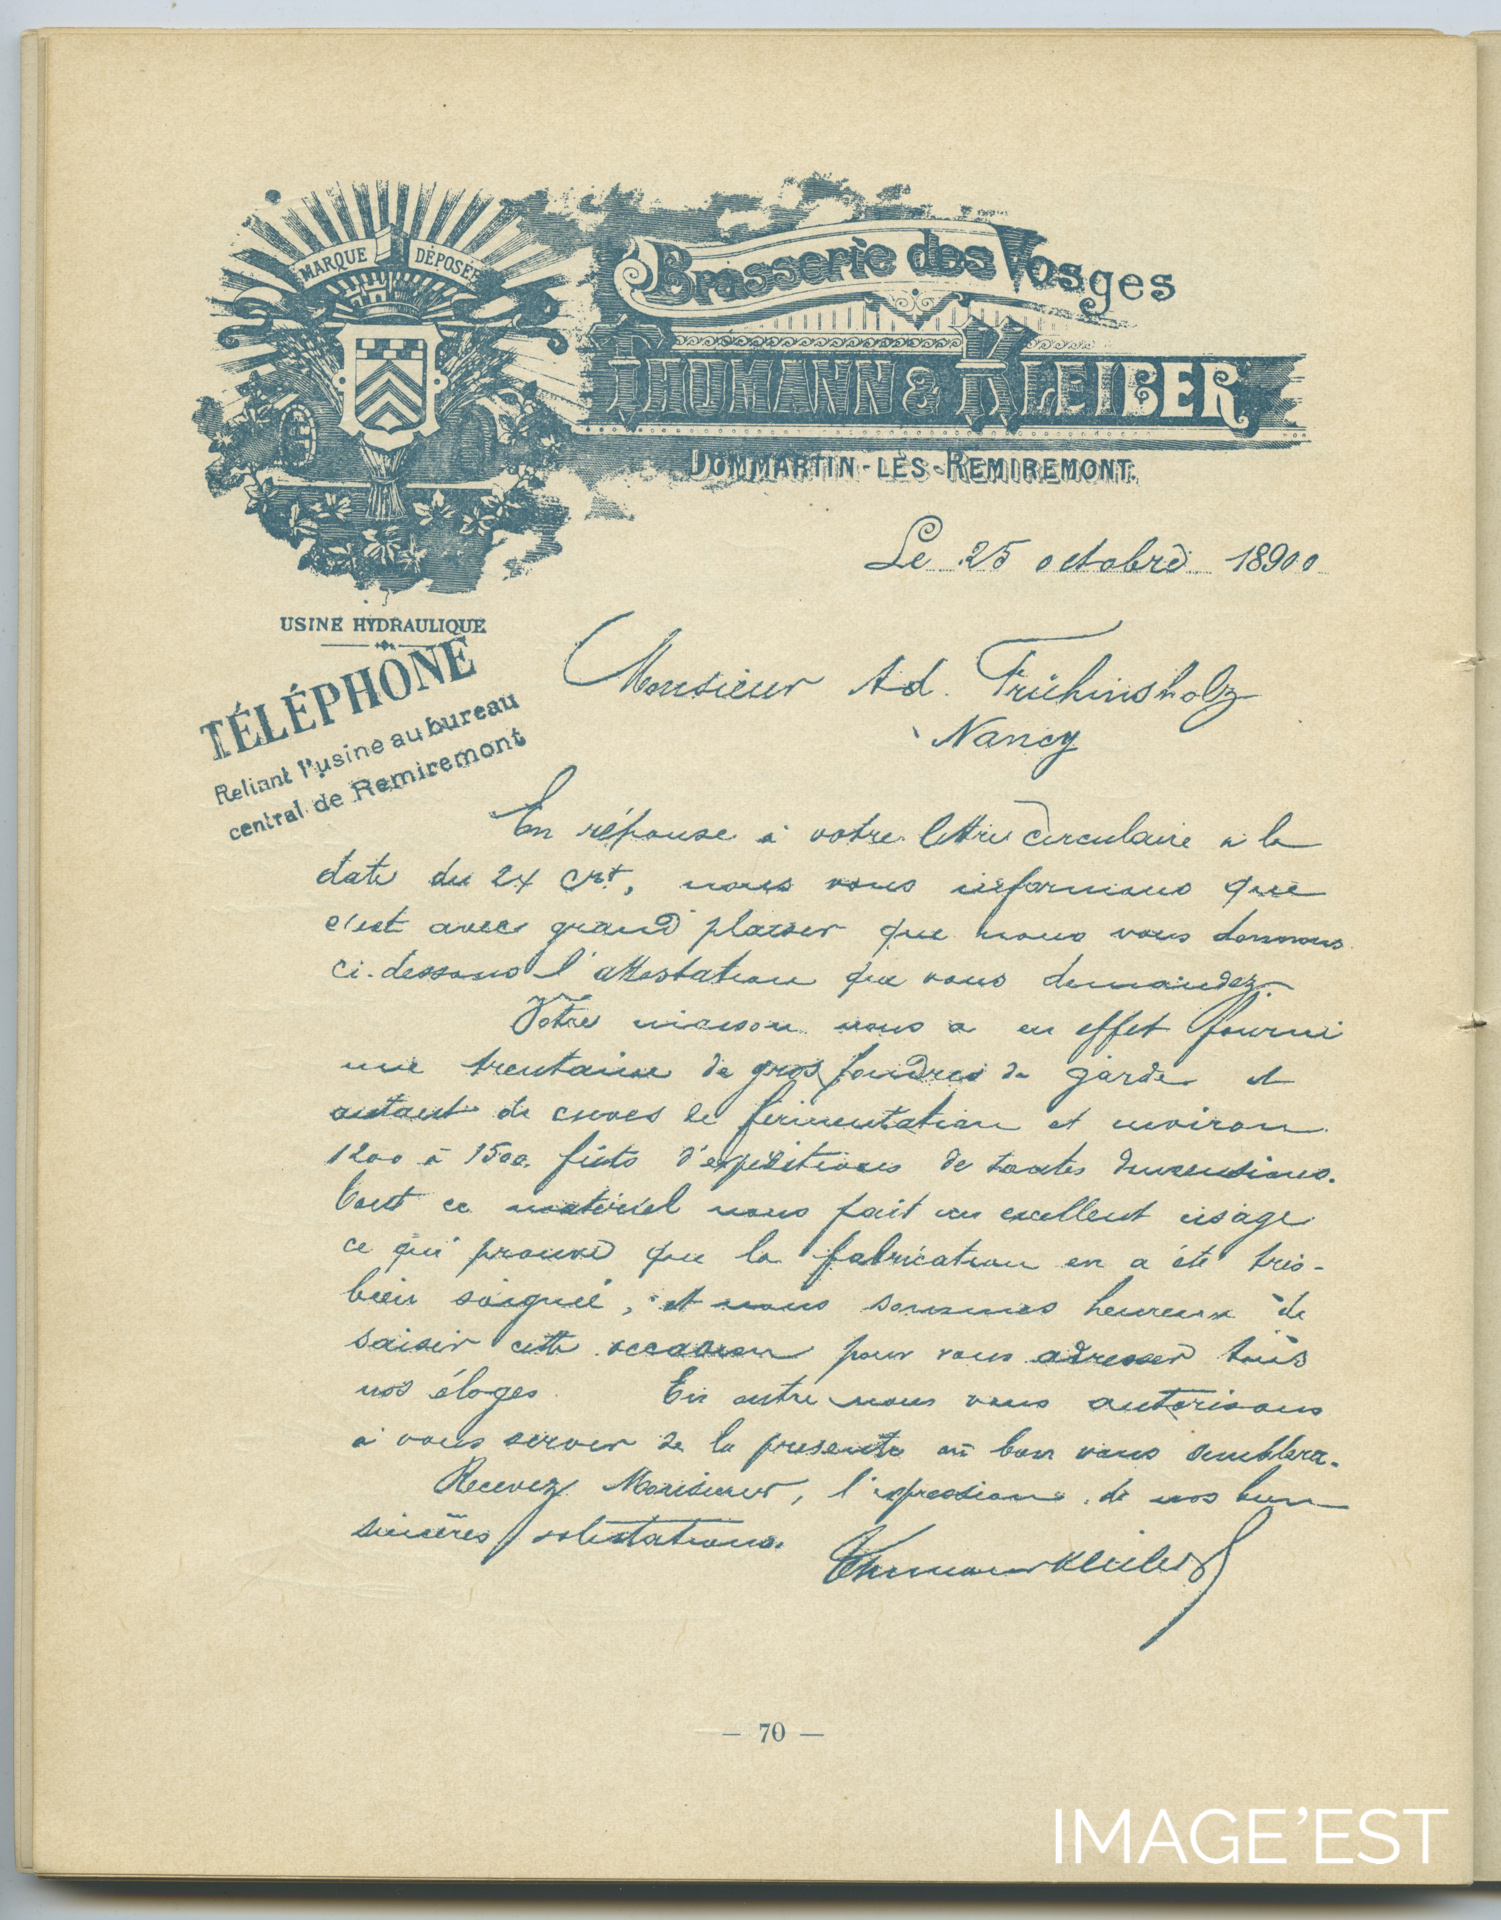 MARQUE DÉPOSÉE
Brasserie des Vosges
THUMANN & KLEIBER
DOMMARTIN-LÈS-REMIREMONT.
Le 25 octobre 18900
USINE HYDRAULIQUE
TÉLÉPHONE
Reliant l'usine au bureau
central de Remiremont
Monsieur Ad. Frühinsholz
Nancy
En réponse à votre lettre circulaire à la
date du 24 crt, nous vous informons que
c'est avec grand plaisir que nous vous donnons
ci-dessous l'attestation que vous demandez.
Votre maison nous a en effet fourni
une trentaine de gros foudres de garde et
autant de cuves de fermentation et environ
1200 à 1500 fûts d'expéditions de toutes dimensions.
Tout ce matériel nous fait un excellent usage
ce qui prouve que la fabrication en a été très-
bien soignée, et nous sommes heureux de
saisir cette occasion pour vous adresser tous
nos éloges. En outre nous vous autorisons
à vous servir de la présente où bon vous semblera.
Recevez Monsieur, l'expression de nos bien
sincères salutations.
Thumann Kleiber
— 70 —
IMAGE'EST